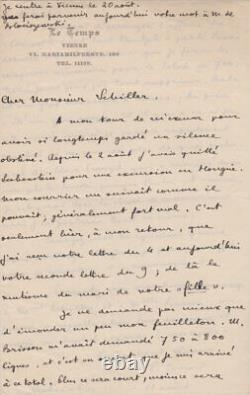 Je rentre à Vienne le 20 août.
ferai parvenir aujourd'hui votre mot à M de
Le Temps
VIENNE
VI. MARIAHILFERSTR. 100
TEL. 11129.
Cher Monsieur Scheiller.
A mon tour de m'excuser pour
avoir si longtemps gardé un silence
obstiné. Depuis le 2 août j'avais quitté
pour une excursion en Hongrie.
Mon courrier me suivait comme il
pouvait, généralement fort mal. C'est
seulement hier, à mon retour, que
j'ai reçu votre lettre du 4 et aujourd'hui
votre seconde lettre du 9, de là la
du mari de votre "fille".
Je ne demande pas mieux que
d'émonder un peu mon feuilleton. M.
Parisson m'avait demandé 750 à 800
lignes, et c'est en que je suis arrivé
à ce total. Plus ce sera court, moins ce sera
© ebay